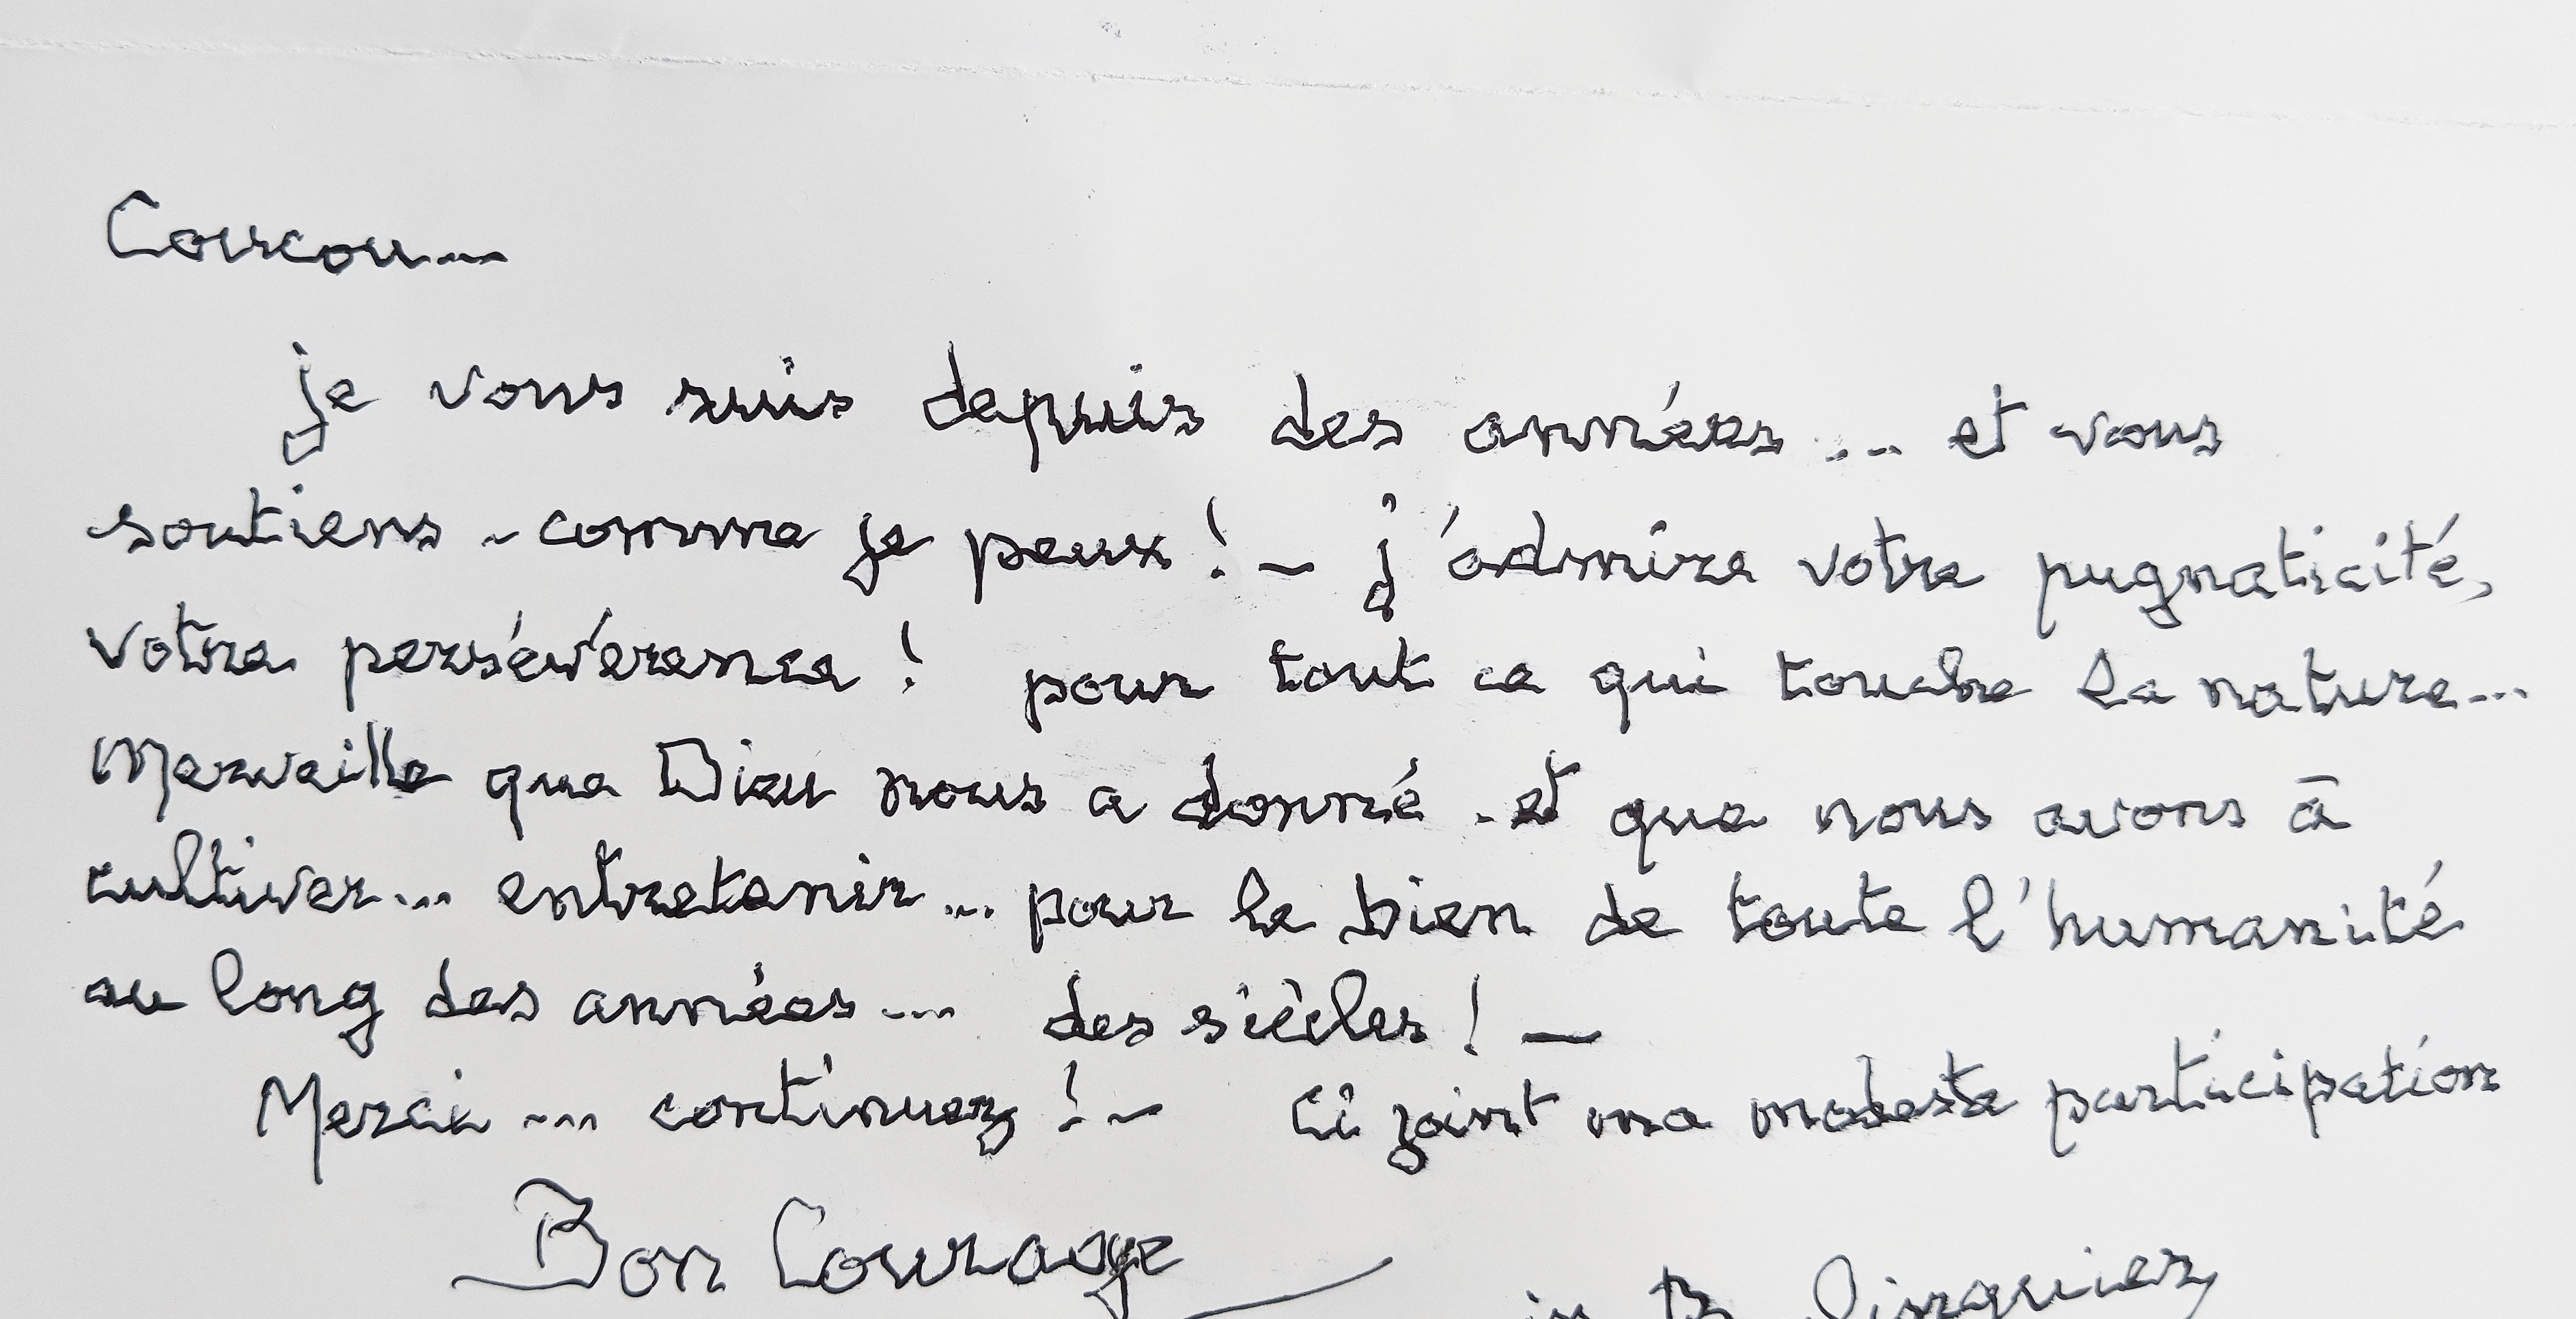 Coucou...
je vous suis depuis des années ... et vous
soutiens - comme je peux ! - j'admire votre pugnaticité,
votre persévérance ! pour tout ce qui touche la nature...
Merveille que Dieu nous a donné - et que nous avons à
cultiver... entretenir... pour le bien de toute l'humanité
au long des années... des siècles ! -
Merci ... continuez ! - Ci joint ma modeste participation
Bon Courage